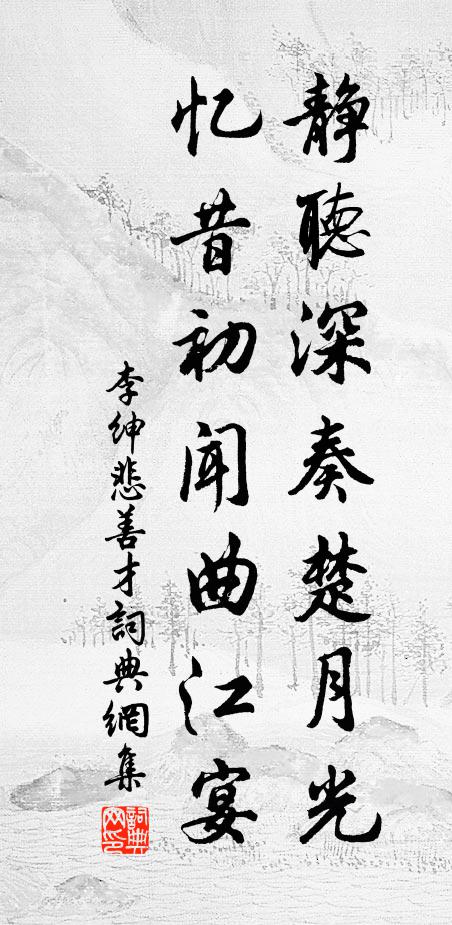 静聽深奏楚月光
忆昔初闻曲江宴
李绅悲善才詞典網集
詞典网印